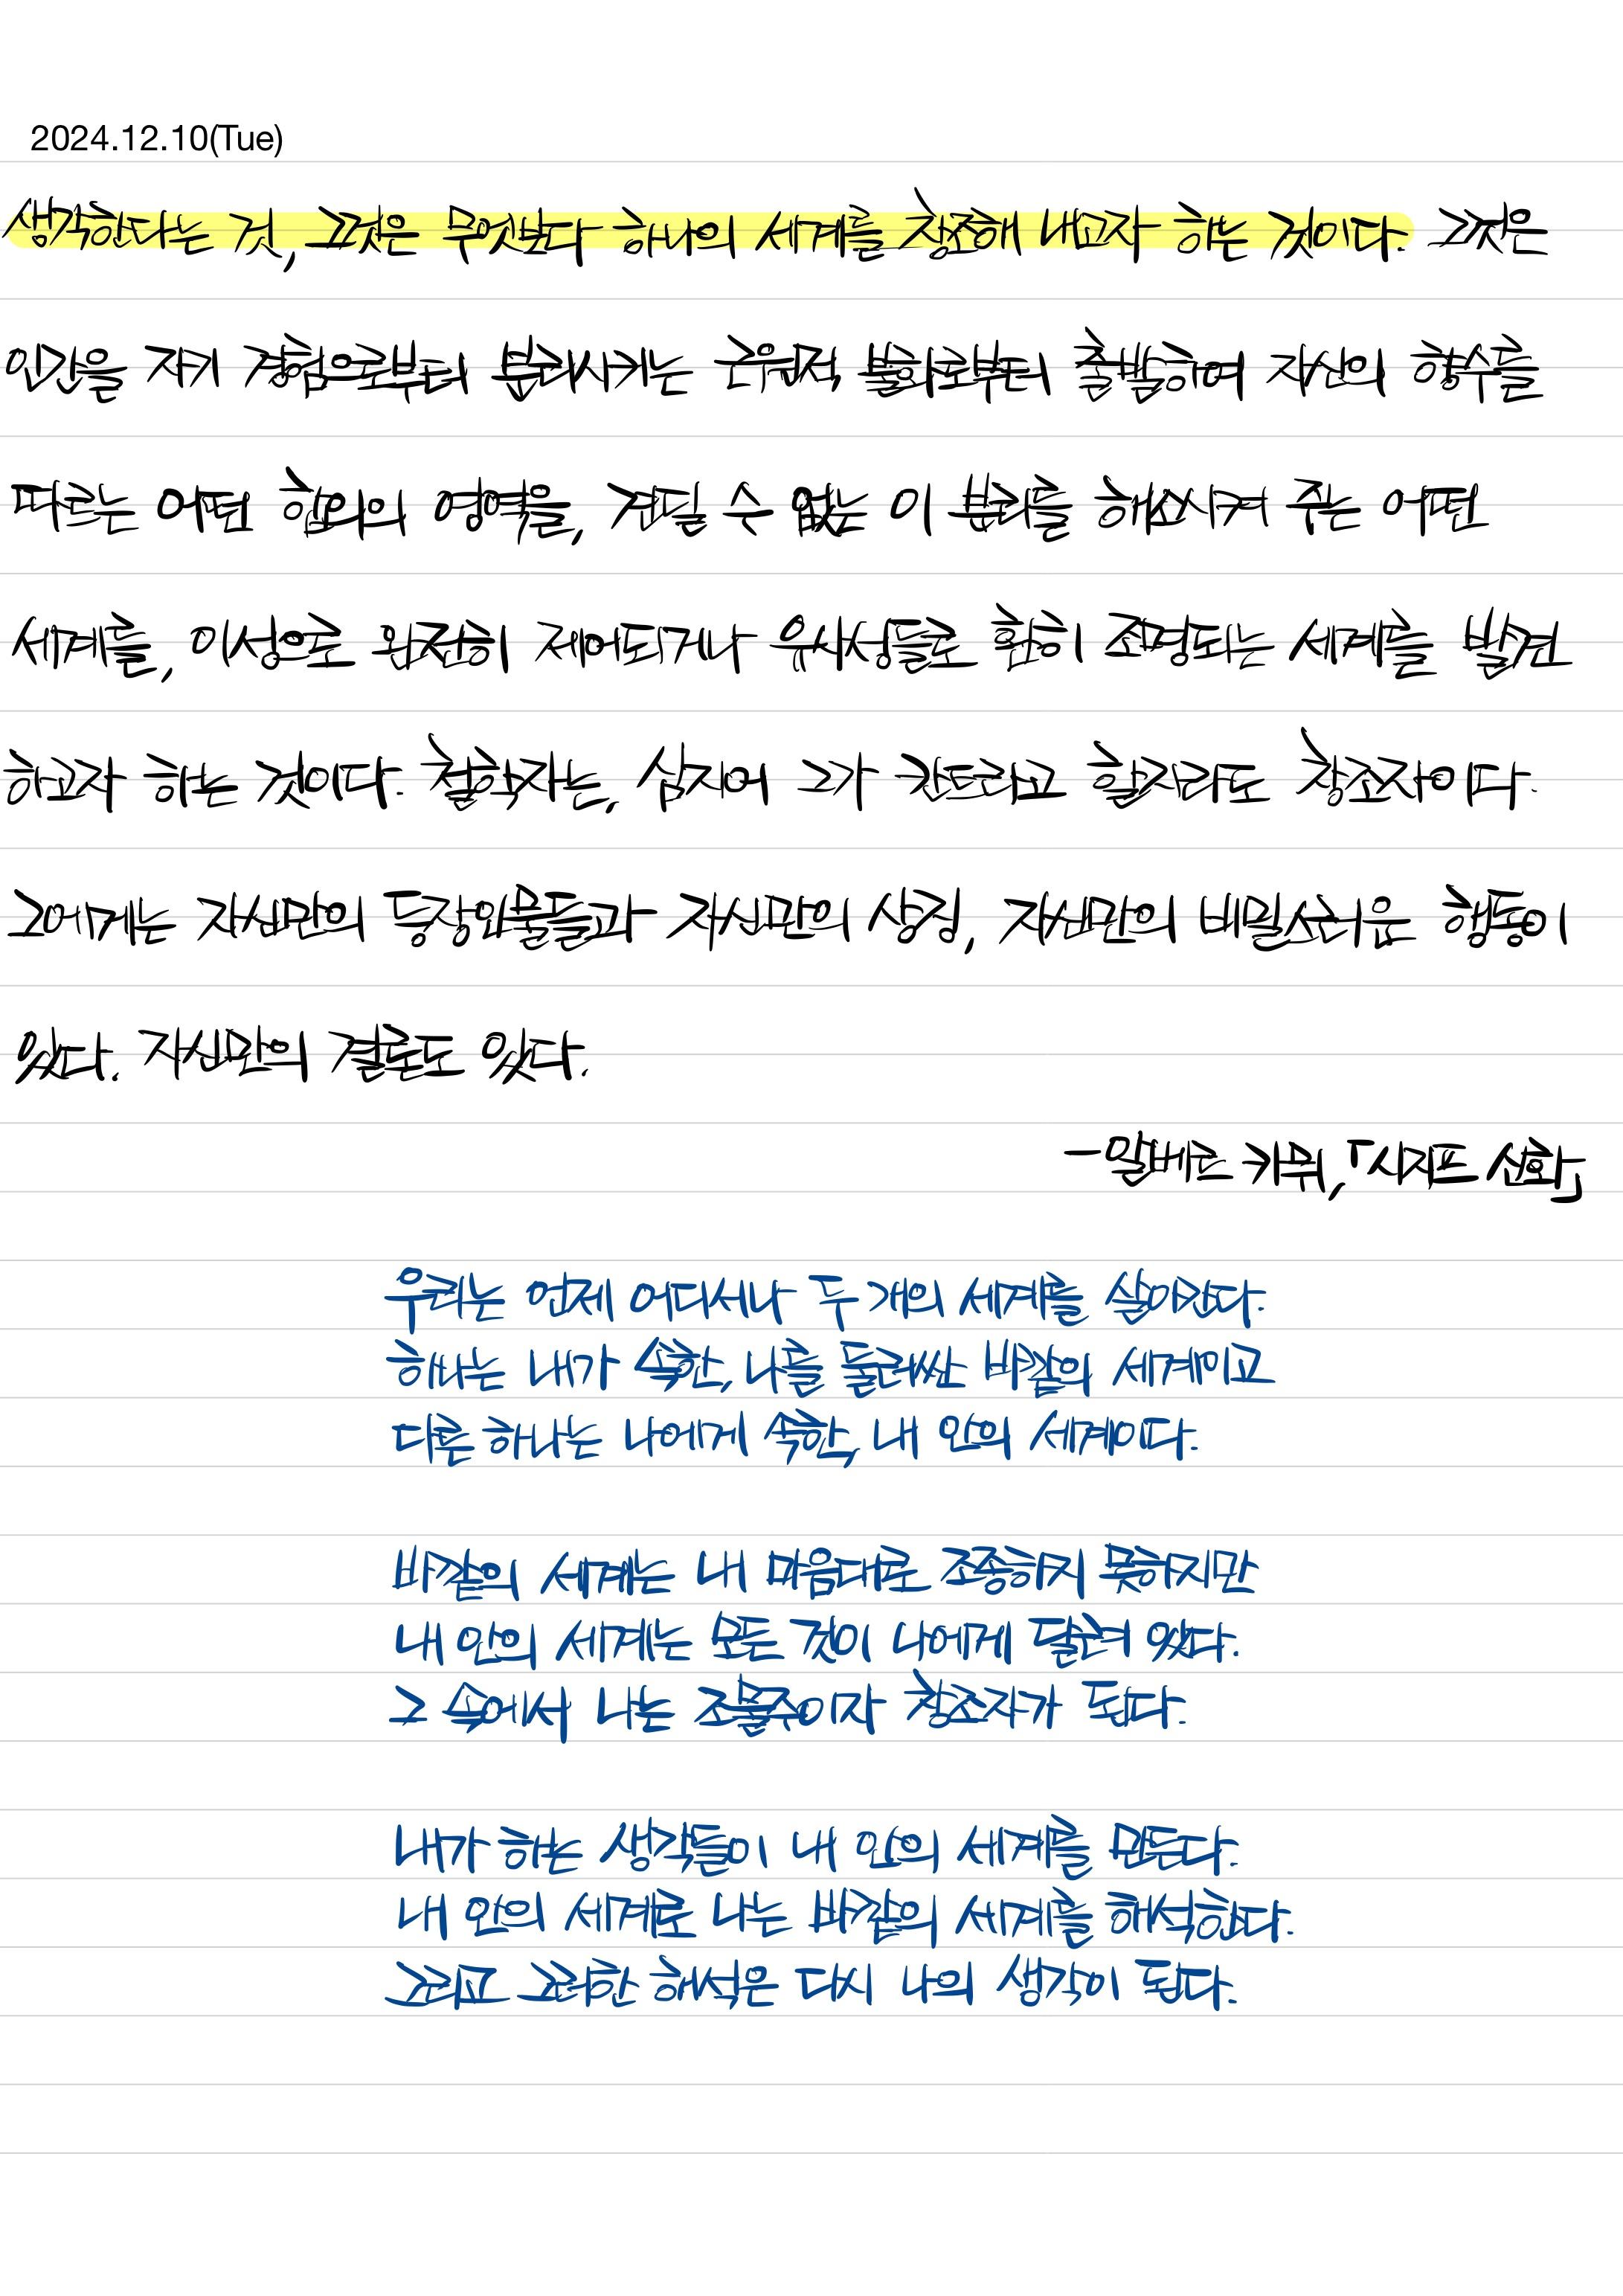 2024.12.10(Tue)
생각한다는 것, 그것은 무엇보다 하나의 세계를 창조해 내고자 하는 것이다. 그것은
인간을 자기 경험으로부터 분리시키는 근원적 불화로부터 출발하여 자신의 향수를
따르는 어떤 합의의 영역을, 견딜 수 없는 이 분리를 해소시켜 주는 어떤
세계를, 이성으로 완전히 제어되거나 유사성들로 환히 조명되는 세계를 발견
하고자 하는 것이다. 철학자는, 심지어 그가 칸트라고 할지라도 창조자이다.
그에게는 자신만의 등장인물들과 자신만의 상징, 자신만의 비밀스러운 행동이
있다. 자신만의 결론도 있다.
-알베르 카뮈,「시지프 신화」
우리는 언제 어디서나 두 개의 세계를 살아간다.
하나는 내가 속한, 나를 둘러싼 바깥의 세계이고
다른 하나는 나에게 속한, 내 안의 세계이다.
바깥의 세계는 내 마음대로 조종하지 못하지만
내 안의 세계는 모든 것이 나에게 달려 있다.
그 속에서 나는 조물주이자 창조자가 된다.
내가 하는 생각들이 내 안의 세계를 만든다.
내 안의 세계로 나는 바깥의 세계를 해석한다.
그리고 그러한 해석은 다시 나의 생각이 된다.